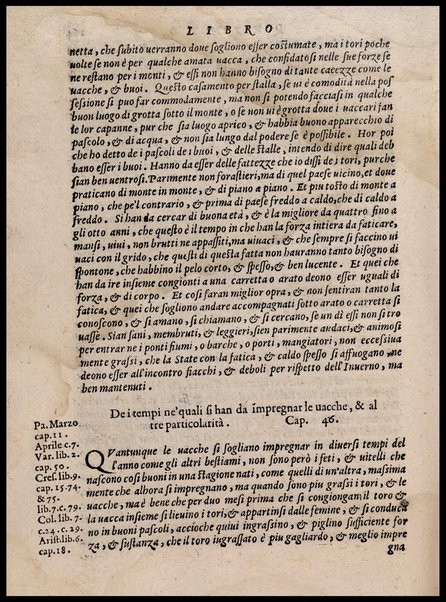 LIBRO
netta, che subito uerranno doue sogliono esser costumate, ma i tori poche
uolte se non è per qualche amata uacca, che confidatosi nelle sue forze se
ne restano per i monti, & essi non hanno bisogno di tante caeezze come le
uacche, & buoi. Questo casamento per stalla, se ui è commodità nella pos
sessione si puo far commodamente, ma non si potendo facciasi in qualche
buon luogo di grotta sotto il monte, o se non ui è grotta doue i uaccari fan
te lor capanne, pur che sia luogo aprico, & habbia buono apparecchio di
pascolo, & di acqua, & non sia lungo dal podere se è possibile. Hor poi
che ho detto de i pascoli de i buoi, & delle stalle, intendo di dire quali deb
bano esser i buoi. Hanno da esser delle fattezze che io dissi de i tori, purche
sian ben uentrosi. Parimente non forastieri, ma di quel paese uicino, et doue
praticano di monte in monte, & di piano a piano. Et piu tosto di monte a
piano, che pe'l contrario, & prima di paese freddo a caldo, che di caldo a
freddo. Si han da cercar di buona età, & è la migliore da quattro fino a
gli otto anni, che questo è il tempo in che han la forza intiera da faticare,
mansi, uiui, non brutti ne appassiti, ma uiuaci, & che sempre si faccino ui
uaci con il grido, che questi di questa fatta non hauranno tanto bisogno di
spontone, che habbino il pelo corto, & spesso, & ben lucente. Et quei che
han da ire insieme congionti a una carretta o arato deono esser uguali di
forza, & di corpo. Et cosi faran miglior opra, & non sentiran tanto la
fatica, & quei che sogliono andare accompagnati sotto arato o carretta si
conoscono, & si amano, si chiamano, & si cercano, se un dì essi non si tro
uasse. Sian sani, membruti, & leggieri, sien parimente audaci, & animosi
per entrar ne i ponti fiumi, o barche, o porti, mangiatori, non eccessiua
mente grassi, che la State con la fatica, & caldo spesso si affuogano, ne
deono esser all'incontro fiacchi, & deboli per rispetto dell'Inuerno, ma
ben mantenuti.
De i tempi ne'quali si han da impregnar le uacche, & al
tre particolarità. Cap. 46.
Pa. Marzo
cap. 11.
Aprile c.7.
Var. lib. 2.
cap. 50.
Cres. lib. 9.
cap. 15.74.
& 75.
lib.7.c.79.
Col. lib. 7.
c.24. c.29.
Arist. lib.6.
cap. 18.
QVantunque le uacche si sogliano impregnar in diuersi tempi del
l'anno come gli altri bestiami, non sono però i feti, & uitelli che
nascono cosi buoni in una stagione nati, come quelli di un'altra, massima
mente che alhora si impregnano, ma quando sono piu grassi i tori, & le
uacche, ma è bene che per duo mesi prima che si congiongam il toro &
la uacca insieme si lieuino i tori, & appartinsi dalle femine, & si conduca
no in buoni pascoli, accioche quiui ingrassino, & piglino sufficiente for
za, & sustanza, che il toro ingrassato è piu gagliardo, & meglio impre
gna